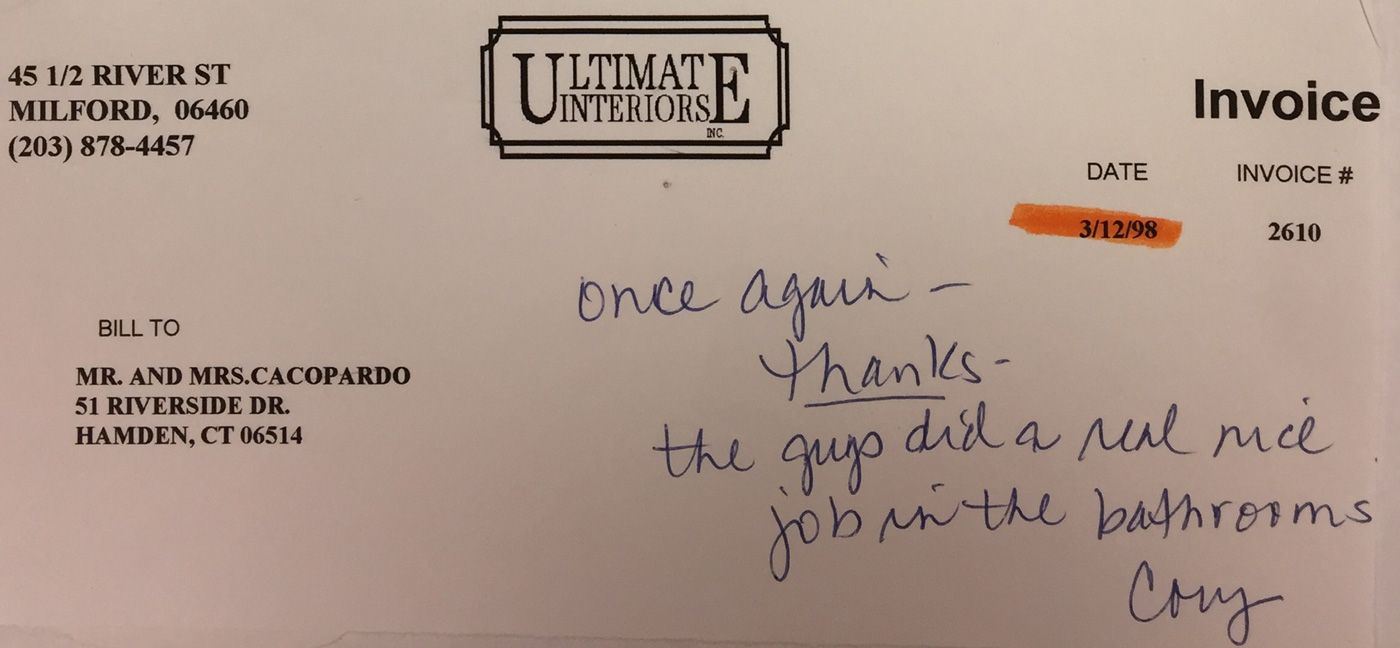 45 1/2 RIVER ST
MILFORD, 06460
(203) 878-4457
ULTIMATE
INTERIORS
INC.
Invoice
DATE
INVOICE #
3/12/98
2610
BILL TO
MR. AND MRS.CACOPARDO
51 RIVERSIDE DR.
HAMDEN, CT 06514
once again -
thanks -
the guys did a real nice
job in the bathrooms
Cory